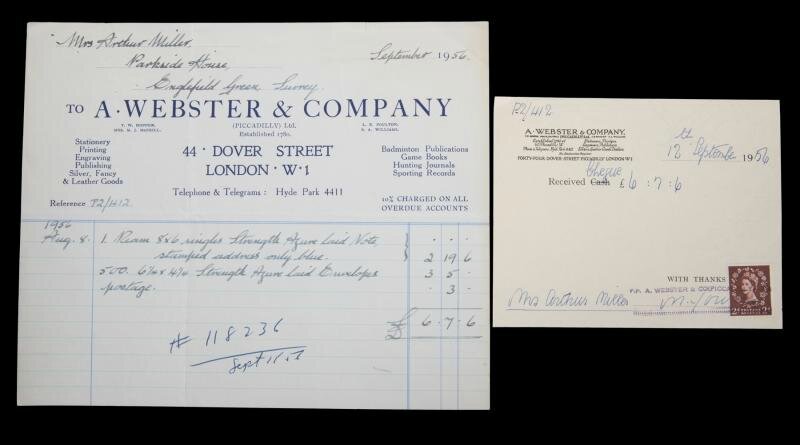 Mrs Arthur Miller,
Parkside House,
September 1956.
Englefield Green Surrey.
TO A. WEBSTER & COMPANY
(PICCADILLY) Ltd.
Established 1780.
T. W. HOOPER,
MRS. M. J. MANSELL.
L. E. POULTON,
S. A. WILLIAMS.
Stationery
Printing
Engraving
Publishing
Silver, Fancy
& Leather Goods
44 · DOVER STREET
LONDON · W·1
Badminton Publications
Game Books
Hunting Journals
Sporting Records
Telephone & Telegrams : Hyde Park 4411
Reference P2/412.
10% CHARGED ON ALL
OVERDUE ACCOUNTS
1956
Aug. 8. 1. Ream 8x6 singles Strength Azure laid Note,
stamped address only blue. 2 19 6
500. Strength Azure laid Envelopes 3 5 .
postage. . 3 .
£ 6 . 7 . 6
# 118236
P2/412
A. WEBSTER & COMPANY.
FORTY-FOUR DOVER STREET PICCADILLY LONDON W·1
12 September 1956
cheque
Received Cash £6 : 7 : 6
WITH THANKS
P.P. A. WEBSTER & CO
Mrs Arthur Miller